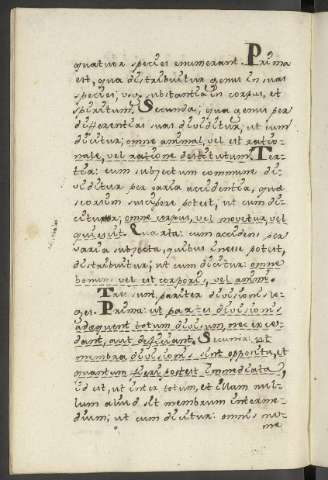 quatuor species enumerant. Prima
est, qua distribuitur genus in suas
species; v.g. substantia in corpus, et
spiritum. Secunda; qua genus per
differentias suas dividitur, ut cum
dicitur; omne animal, vel est ratio-
nale, vel ratione destitutum. Ter-
tia: cum subjectum commune di-
viditur per paria accidentia, quæ
seorsium suscipere potest, ut cum di-
citur, omne corpus, vel movetur, vel
quiescit. Quarta: cum accidens per
varia subjecta, quibus inesse potest,
distribuitur; ut cum dicitur: omne
bonum vel est corporis, vel animi.
Tres sunt pariter divisionis le-
ges. Prima: ut partes divisionis
adæquent totum divisum, nec exce-
dant, aut deficiant. Secunda: ut
membra divisionis sint opposita, et
quantum fieri potest immediata,
id est, ut inter totum, et illam nul-
lum aliud sit membrum interme-
dium; ut cum dicitur: omnis no-
me